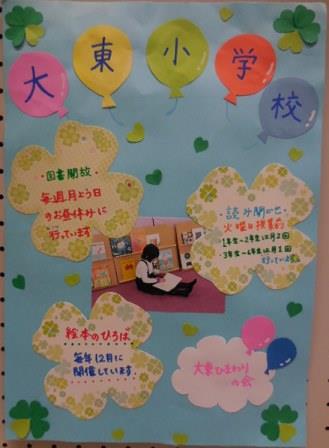 大東小学校
・図書開放・
毎週月よう日
のお昼休みに
行っています
・読み聞かせ・
火曜日授業前
・1年生〜2年生は月2回
・3年生〜6年生は月1回
行っています
絵本のひろば
毎年12月に
開催しています
大東ひまわり
の会